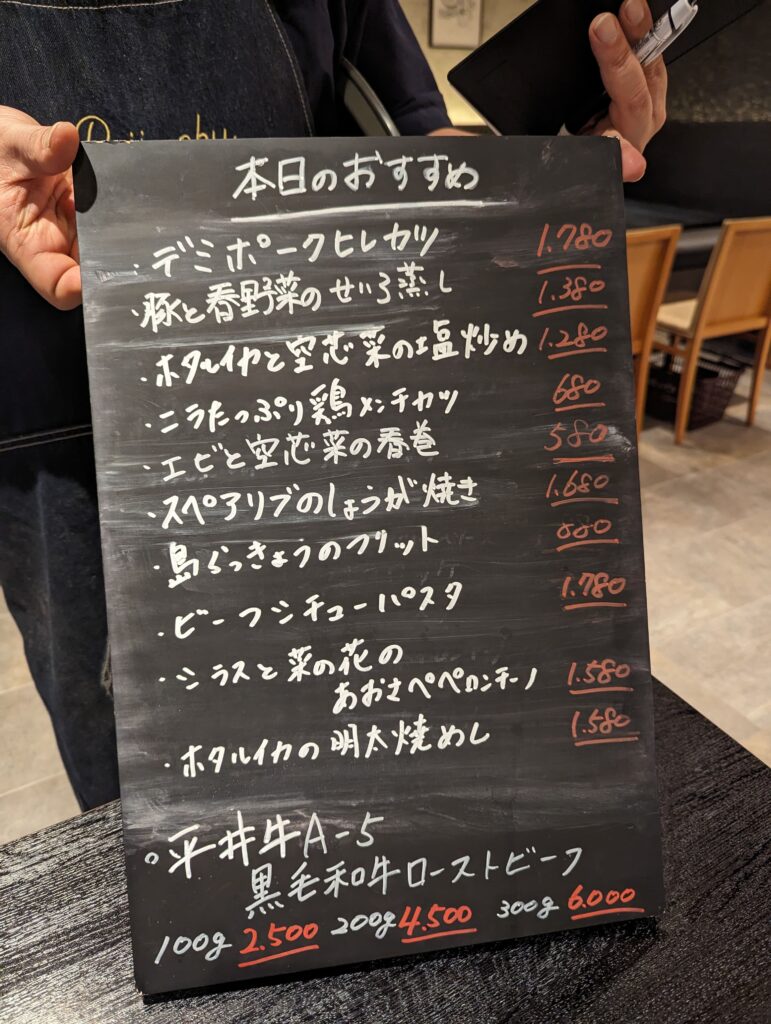 本日のおすすめ
・デミポークヒレカツ 1.780
・豚と春野菜のせいろ蒸し 1.380
・ホタルイカと空芯菜の塩炒め 1.280
・ニラたっぷり鶏メンチカツ 680
・エビと空芯菜の春巻 580
・スペアリブのしょうが焼き 1.680
・島らっきょうのフリット 880
・ビーフシチューパスタ 1.780
・シラスと菜の花の
あおさペペロンチーノ 1.580
・ホタルイカの明太焼めし 1.580
○平井牛A-5
黒毛和牛ローストビーフ
100g 2.500 200g 4.500 300g 6.000